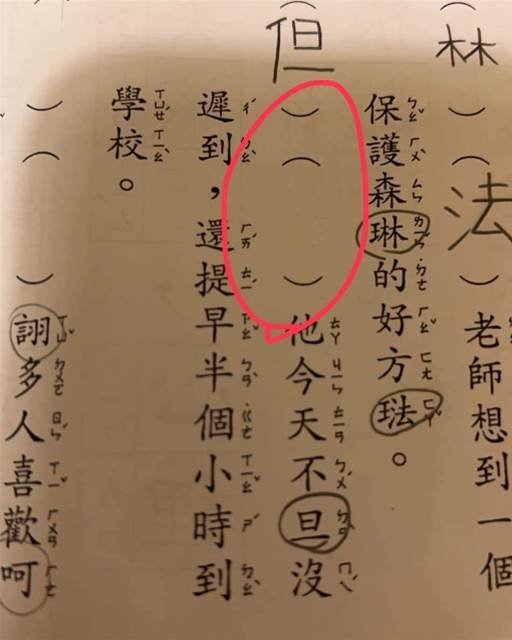 （林）（法）老師想到一個
保護森琳的好方琺。
（但）（　）他今天不旦沒
遲到，還提早半個小時到
學校。
）（　）詡多人喜歡呵